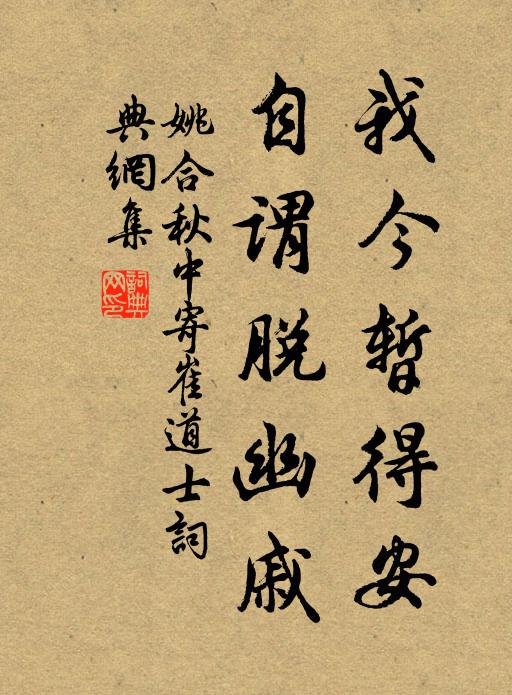 我今暫得安
自謂脫幽戚
姚合秋中寄崔道士詞
典網集
詞典
网印